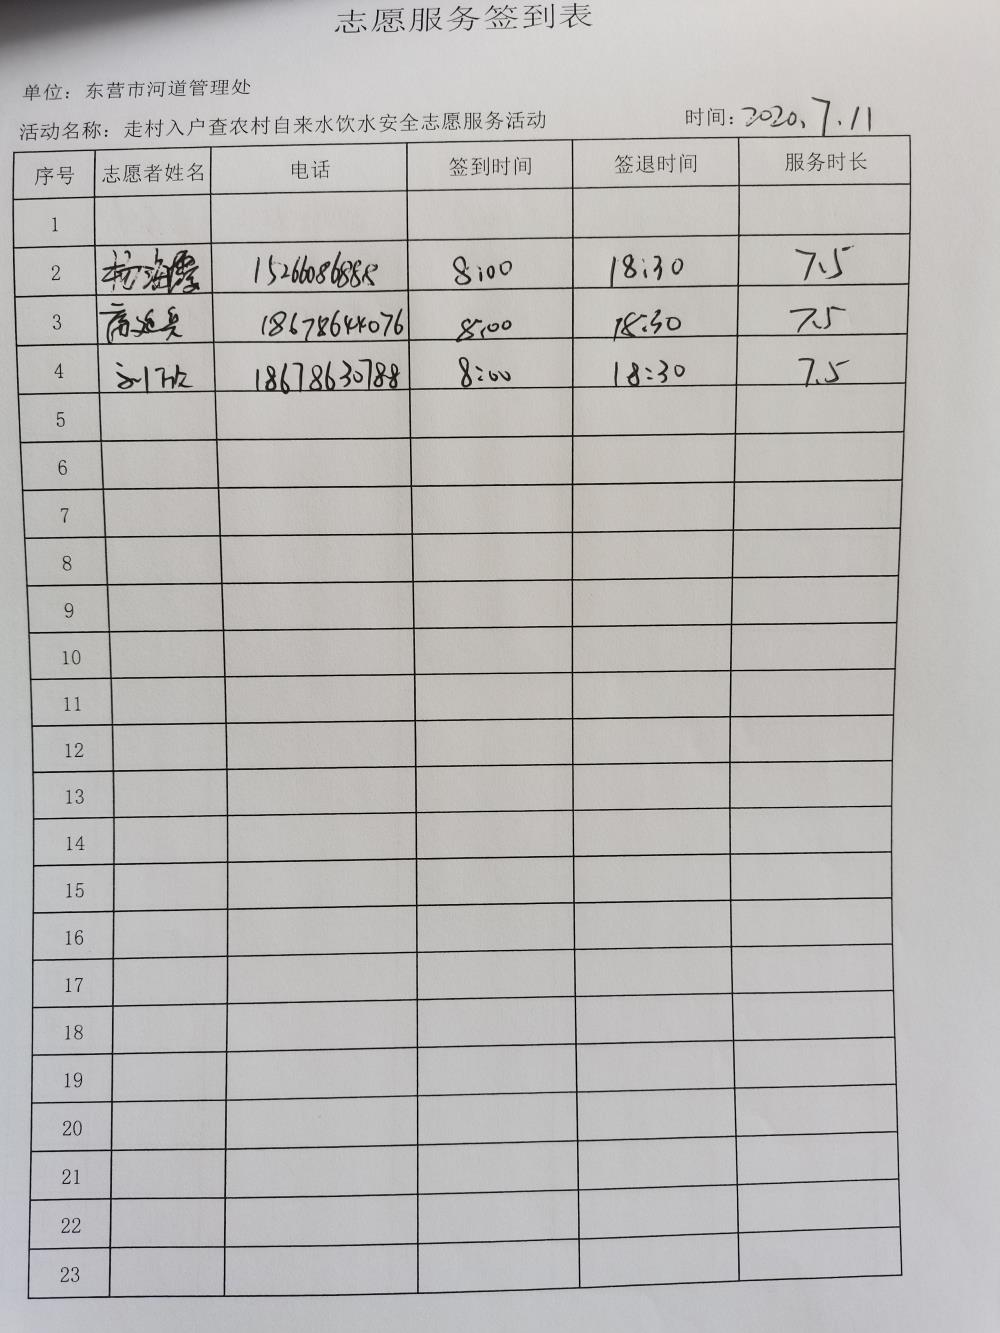 志愿服务签到表
单位：东营市河道管理处
活动名称：走村入户查农村自来水饮水安全志愿服务活动 时间：2020.7.11
序号 志愿者姓名 电话 签到时间 签退时间 服务时长
1
2 15266086888 8:00 18:30 7.5
3 18678644076 8:00 18:30 7.5
4 18678630788 8:00 18:30 7.5
5
6
7
8
9
10
11
12
13
14
15
16
17
18
19
20
21
22
23